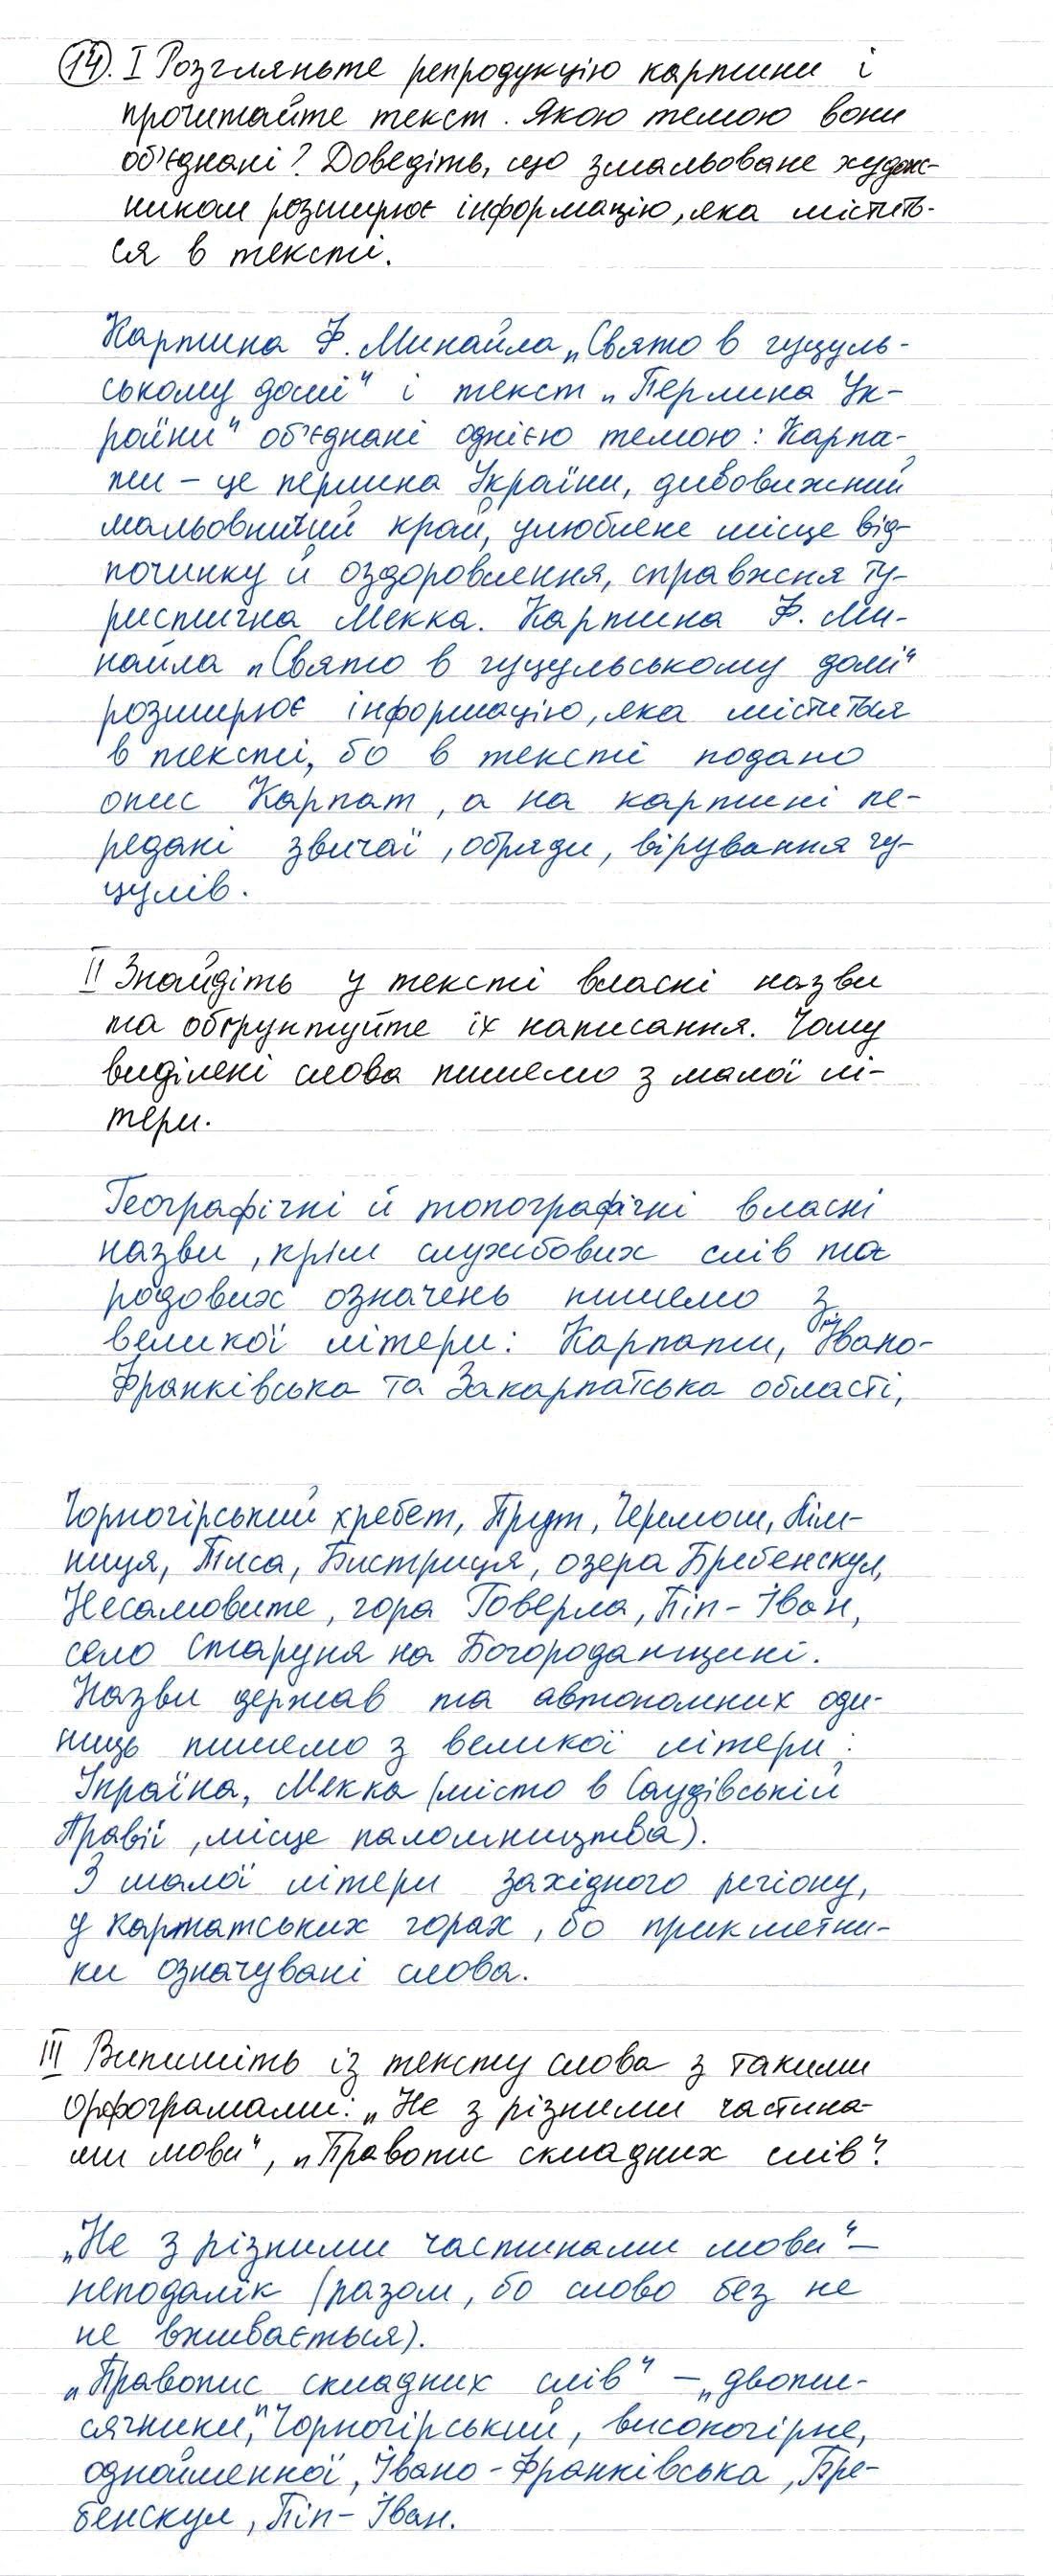 14. I Розгляньте репродукцію картини і
прочитайте текст. Якою темою вони
об'єднані? Доведіть, що змальоване худож-
ником розширює інформацію, яка містить-
ся в тексті.
Картина Ф. Минайла „Свято в гуцуль-
ському домі" і текст „Перлина Ук-
раїни" об'єднані однією темою: Карпа-
ти – це перлина України, дивовижний
мальовничий край, улюблене місце від-
починку й оздоровлення, справжня ту-
ристична Мекка. Картина Ф. Ми-
найла „Свято в гуцульському домі"
розширює інформацію, яка міститься
в тексті, бо в тексті подано
опис Карпат, а на картині пе-
редані звичаї, обряди, вірування гу-
цулів.
II Знайдіть у тексті власні назви
та обґрунтуйте їх написання. Чому
виділені слова пишемо з малої лі-
тери.
Географічні й топографічні власні
назви, крім службових слів та
родових означень пишемо з
великої літери: Карпати, Івано-
Франківська та Закарпатська області,
Чорногірський хребет, Прут, Черемош, Лім-
ниця, Тиса, Бистриця, озера Бребенскул,
Несамовите, гора Говерла, Піп-Іван,
село Старуня на Богородчанщині.
Назви держав та автономних оди-
ниць пишемо з великої літери:
Україна, Мекка (місто в Саудівській
Аравії, місце паломництва).
З малої літери західного регіону,
у карпатських горах, бо прикметни-
ки означувані слова.
III Випишіть із тексту слова з такими
орфограмами: „Не з різними частина-
ми мови", „Правопис складних слів".
„Не з різними частинами мови" –
неподалік (разом, бо слово без не
не вживається).
„Правопис складних слів" – „двоти-
сячники," Чорногірський, високогірне,
однойменної, Івано-Франківська, Бре-
бенскул, Піп-Іван.